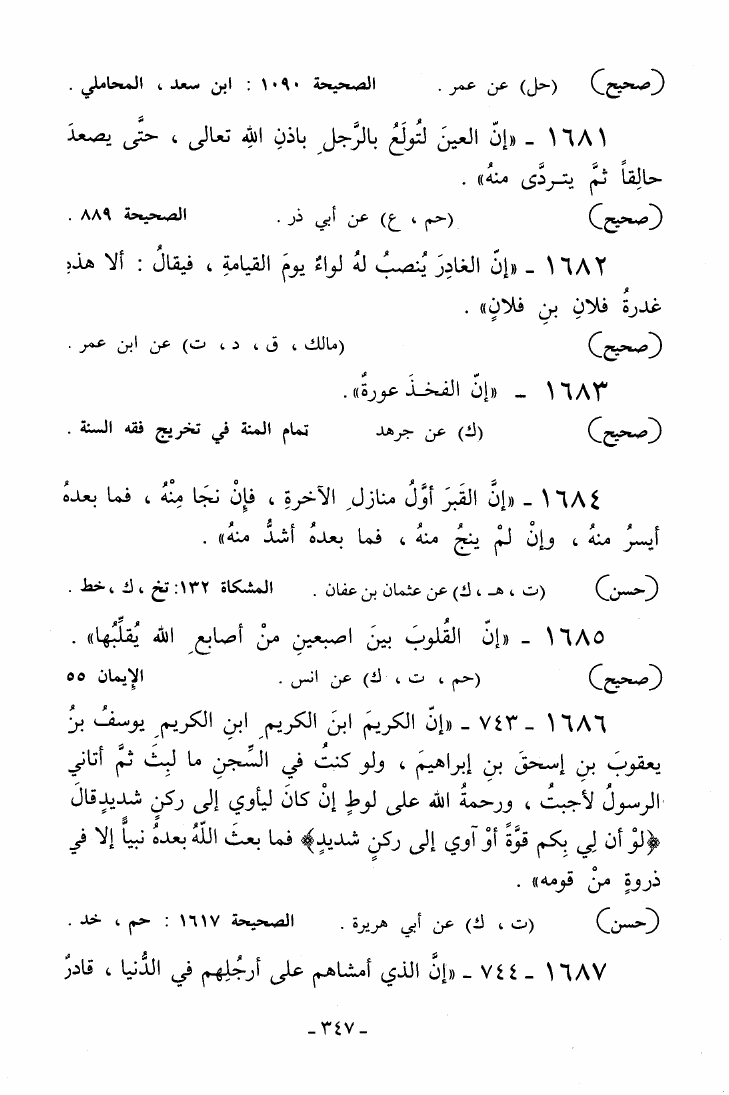 (صحيح) (حل) عن عمر . الصحيحة ١٠٩٠ : ابن سعد ، المحاملي .
١٦٨١ - «إنّ العينَ لتُولَعُ بالرَّجلِ باذنِ اللهِ تعالى ، حتَّى يصعدَ
حالِقاً ثمَّ يتردَّى منهُ» .
(صحيح) (حم ، ع) عن أبي ذر . الصحيحة ٨٨٩ .
١٦٨٢ - «إنّ الغادِرَ يُنصبُ لهُ لواءٌ يومَ القيامةِ ، فيقالُ : ألا هذهِ
غدرةُ فلانِ بنِ فلانٍ» .
(صحيح) (مالك ، ق ، د ، ت) عن ابن عمر .
١٦٨٣ - «إنّ الفخـذَ عورةٌ» .
(صحيح) (ك) عن جرهد تمام المنة في تخريج فقه السنة .
١٦٨٤ - «إنَّ القَبرَ أوَّلُ منازلِ الآخرةِ ، فإنْ نجَا مِنْهُ ، فما بعدهُ
أيسرُ منهُ ، وإنْ لمْ ينجُ منهُ ، فما بعدهُ أشدُّ منهُ» .
(حسن) (ت ، هـ ، ك) عن عثمان بن عفان . المشكاة ١٣٢: تخ ، ك ، خط .
١٦٨٥ - «إنّ القُلوبَ بينَ اصبعينِ منْ أصابعِ الله يُقلِّبُها» .
(صحيح) (حم ، ت ، ك) عن انس . الإيمان ٥٥
١٦٨٦ - ٧٤٣ - «إنّ الكريمَ ابنَ الكريمِ ابنِ الكريمِ يوسفُ بنُ
يعقوبَ بنِ إسحقَ بنِ إبراهيمَ ، ولو كنتُ في السِّجنِ ما لبِثَ ثمَّ أتاني
الرسولُ لأجبتُ ، ورحمةُ الله على لوطٍ إنْ كانَ ليأوي إلى ركنٍ شديدٍ قالَ
﴿لوْ أن لِي بِكم قوَّةً أوْ آوي إلى ركنٍ شديدٍ﴾ فما بعثَ اللّهُ بعدهُ نبياً إلا في
ذروةٍ منْ قومه» .
(حسن) (ت ، ك) عن أبي هريرة . الصحيحة ١٦١٧ : حم ، خد .
١٦٨٧ - ٧٤٤ - «إنَّ الذي أمشاهم على أرجُلِهم في الدُّنيا ، قادرٌ
- ٣٤٧ -